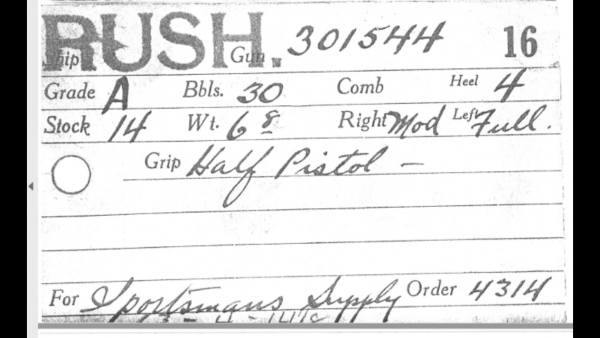 RUSH.
Ship Gun 301544 16
Grade A Bbls. 30 Comb Heel 4
Stock 14 Wt. 6 8 Right Mod Left Full.
Grip Half Pistol —
For Sportsmans Supply Order 4314